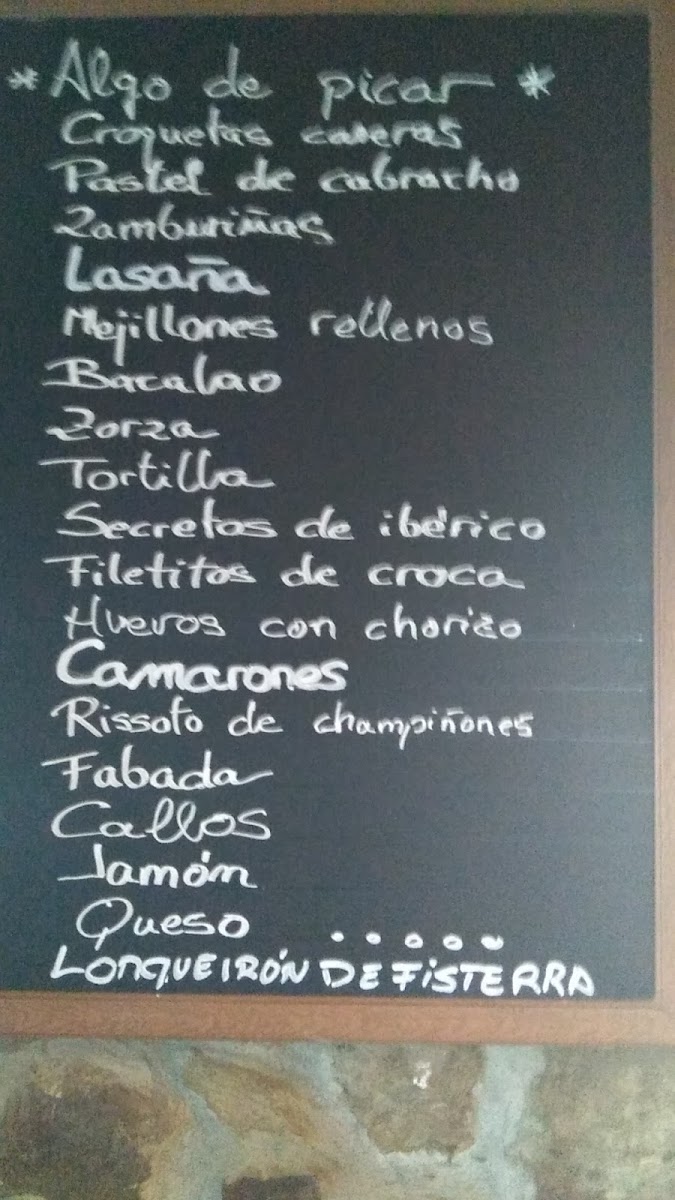 * Algo de picar *
Croquetas caseras
Pastel de cabracho
Zamburiñas
Lasaña
Mejillones rellenos
Bacalao
Zorza
Tortilla
Secretos de ibérico
Filetitos de croca
Huevos con chorizo
Camarones
Rissoto de champiñones
Fabada
Callos
Jamón
Queso .....
LONQUEIRÓN DE FiSTERRA